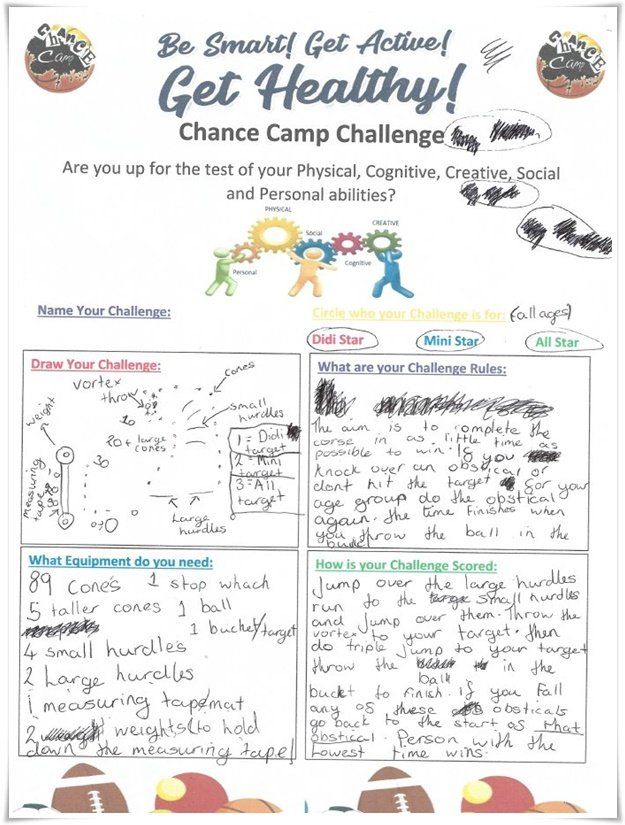 ChanCE
Camp
ChanCE
Camp
Be Smart! Get Active!
Get Healthy!
Chance Camp Challenge
Are you up for the test of your Physical, Cognitive, Creative, Social
and Personal abilities?
PHYSICAL
Social
CREATIVE
Personal
Cognitive
Name Your Challenge:
Circle who your Challenge is for: (all ages)
Didi Star
Mini Star
All Star
Draw Your Challenge:
cones
vortex
throw
small
hurdles
weight
10
20
large
cones
30
1 = Didi
target
2 = Mini
target
3 = All
target
measuring
tape
Large
hurdles
What are your Challenge Rules:
The aim is to complete the
corse in as little time as
possible to win. If you
knock over an obstical or
dont hit the target for your
age group do the obstical
again. the time finishes when
you throw the ball in the
bucket
What Equipment do you need:
89 cones 1 stop whach
5 taller cones 1 ball
1 bucket/target
4 small hurdles
2 Large hurdles
1 measuring tape/mat
2 weights (to hold
down the measuring tape)
How is your Challenge Scored:
Jump over the large hurdles
run to the small hurdles
and jump over them. Throw the
vortex to your target. then
do triple jump to your target
throw the ball in the
buckt to finish. if you fall
any of these obsticals
go back to the start of that
obstical. Person with the
Lowest time wins.